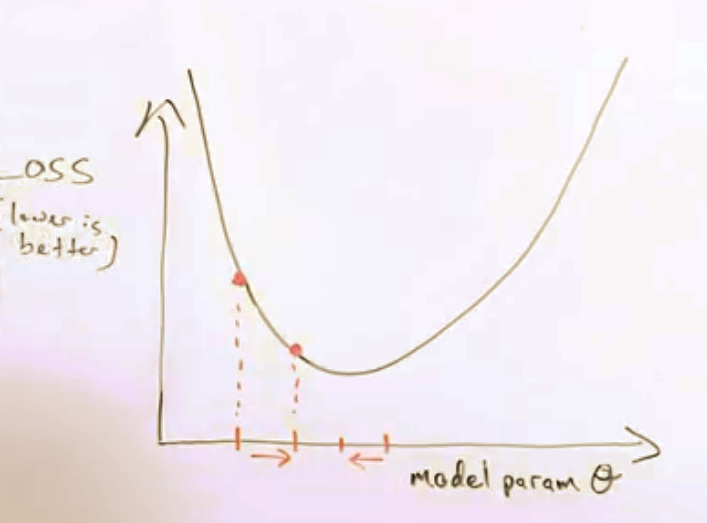 LOSS
(lower is
better)
model param θ